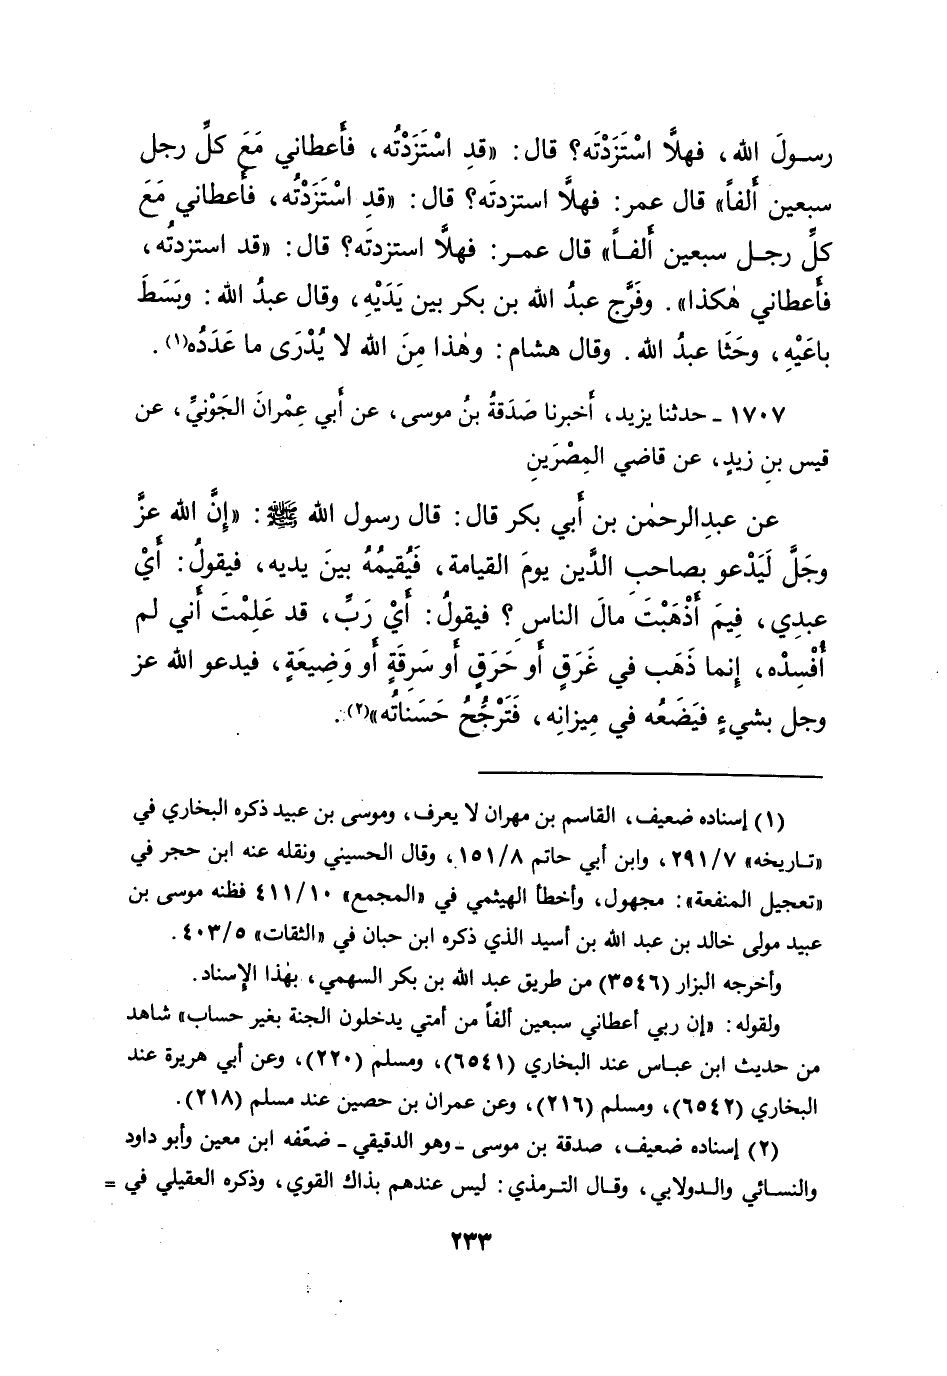 رسولَ الله، فهلَّا اسْتَزَدْتَه؟ قال: «قدِ اسْتَزَدْتُه، فأَعطاني مَعَ كلِّ رجل
سبعين أَلفاً» قال عمر: فهلَّا استزدتَه؟ قال: «قدِ اسْتَزَدْتُه، فأَعطاني مَعَ
كلِّ رجل سبعين أَلفاً» قال عمر: فهلَّا استزدتَه؟ قال: «قد استزدتُه،
فأَعطاني هٰكذا». وفَرَّج عبدُ الله بن بكر بين يَدَيْهِ، وقال عبدُ الله: وبَسَطَ
باعَيْهِ، وحَثَا عبدُ الله. وقال هشام: وهٰذا مِنَ الله لا يُدْرَى ما عَدَدُه(١).
١٧٠٧ - حدثنا يزيد، أَخبرنا صَدَقةُ بنُ موسى، عن أَبي عِمْرانَ الجَوْنيِّ، عن
قيس بنِ زيدٍ، عن قاضي المِصْرَينِ
عن عبدِالرحمٰن بن أَبي بكر قال: قال رسول الله ﷺ: «إِنَّ الله عزَّ
وجَلَّ لَيَدْعو بصاحبِ الدَّين يومَ القيامة، فَيُقيمُهُ بينَ يديه، فيقولُ: أَيْ
عبدِي، فِيمَ أَذْهَبْتَ مالَ الناسِ؟ فيقولُ: أَيْ رَبِّ، قد عَلِمْتَ أَني لم
أُفْسِدْه، إِنما ذَهَب في غَرَقٍ أَو حَرَقٍ أَو سَرِقَةٍ أَو وَضِيعَةٍ، فيدعو الله عز
وجل بشيءٍ فيَضَعُه في مِيزانِه، فَتَرْجُحُ حَسَناتُه»(٢).
(١) إسناده ضعيف، القاسم بن مهران لا يعرف، وموسى بن عبيد ذكره البخاري في
«تاريخه» ٢٩١/٧، وابن أبي حاتم ١٥١/٨، وقال الحسيني ونقله عنه ابن حجر في
«تعجيل المنفعة»: مجهول، وأخطأ الهيثمي في «المجمع» ٤١١/١٠ فظنه موسى بن
عبيد مولى خالد بن عبد الله بن أسيد الذي ذكره ابن حبان في «الثقات» ٤٠٣/٥.
وأخرجه البزار (٣٥٤٦) من طريق عبد الله بن بكر السهمي، بهٰذا الإسناد.
ولقوله: «إن ربي أعطاني سبعين ألفاً من أمتي يدخلون الجنة بغير حساب» شاهد
من حديث ابن عباس عند البخاري (٦٥٤١)، ومسلم (٢٢٠)، وعن أبي هريرة عند
البخاري (٦٥٤٢)، ومسلم (٢١٦)، وعن عمران بن حصين عند مسلم (٢١٨).
(٢) إسناده ضعيف، صدقة بن موسى - وهو الدقيقي - ضعّفه ابن معين وأبو داود
والنسائي والدولابي، وقال الترمذي: ليس عندهم بذاك القوي، وذكره العقيلي في =
٢٣٣